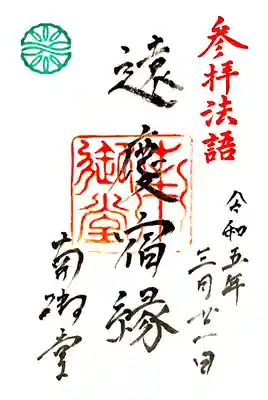 參拝法語
令和五年
三月廿一日
遠慶宿縁
南御堂